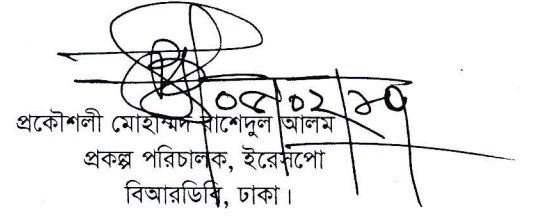 ০২
প্রকৌশলী মোহাম্মদ রাশেদুল আলম
প্রকল্প পরিচালক, ইরেসপো
বিআরডিবি, ঢাকা।